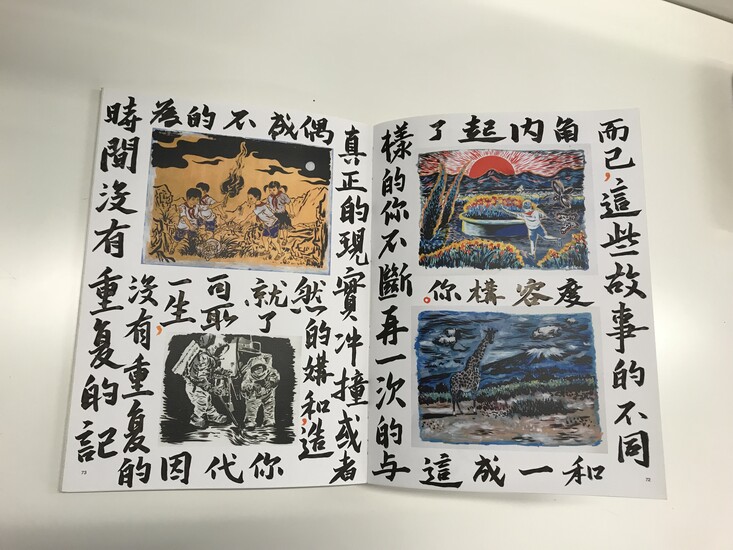 而已,這些故事的不同
角度和
內容一
起構成
了你。這
樣的你不斷再一次的与
72
真正的現實冲撞或者
偶然的媾和,造
成就了你
不可取代
的一生,因
為沒有重复的
時間沒有重复的記
73